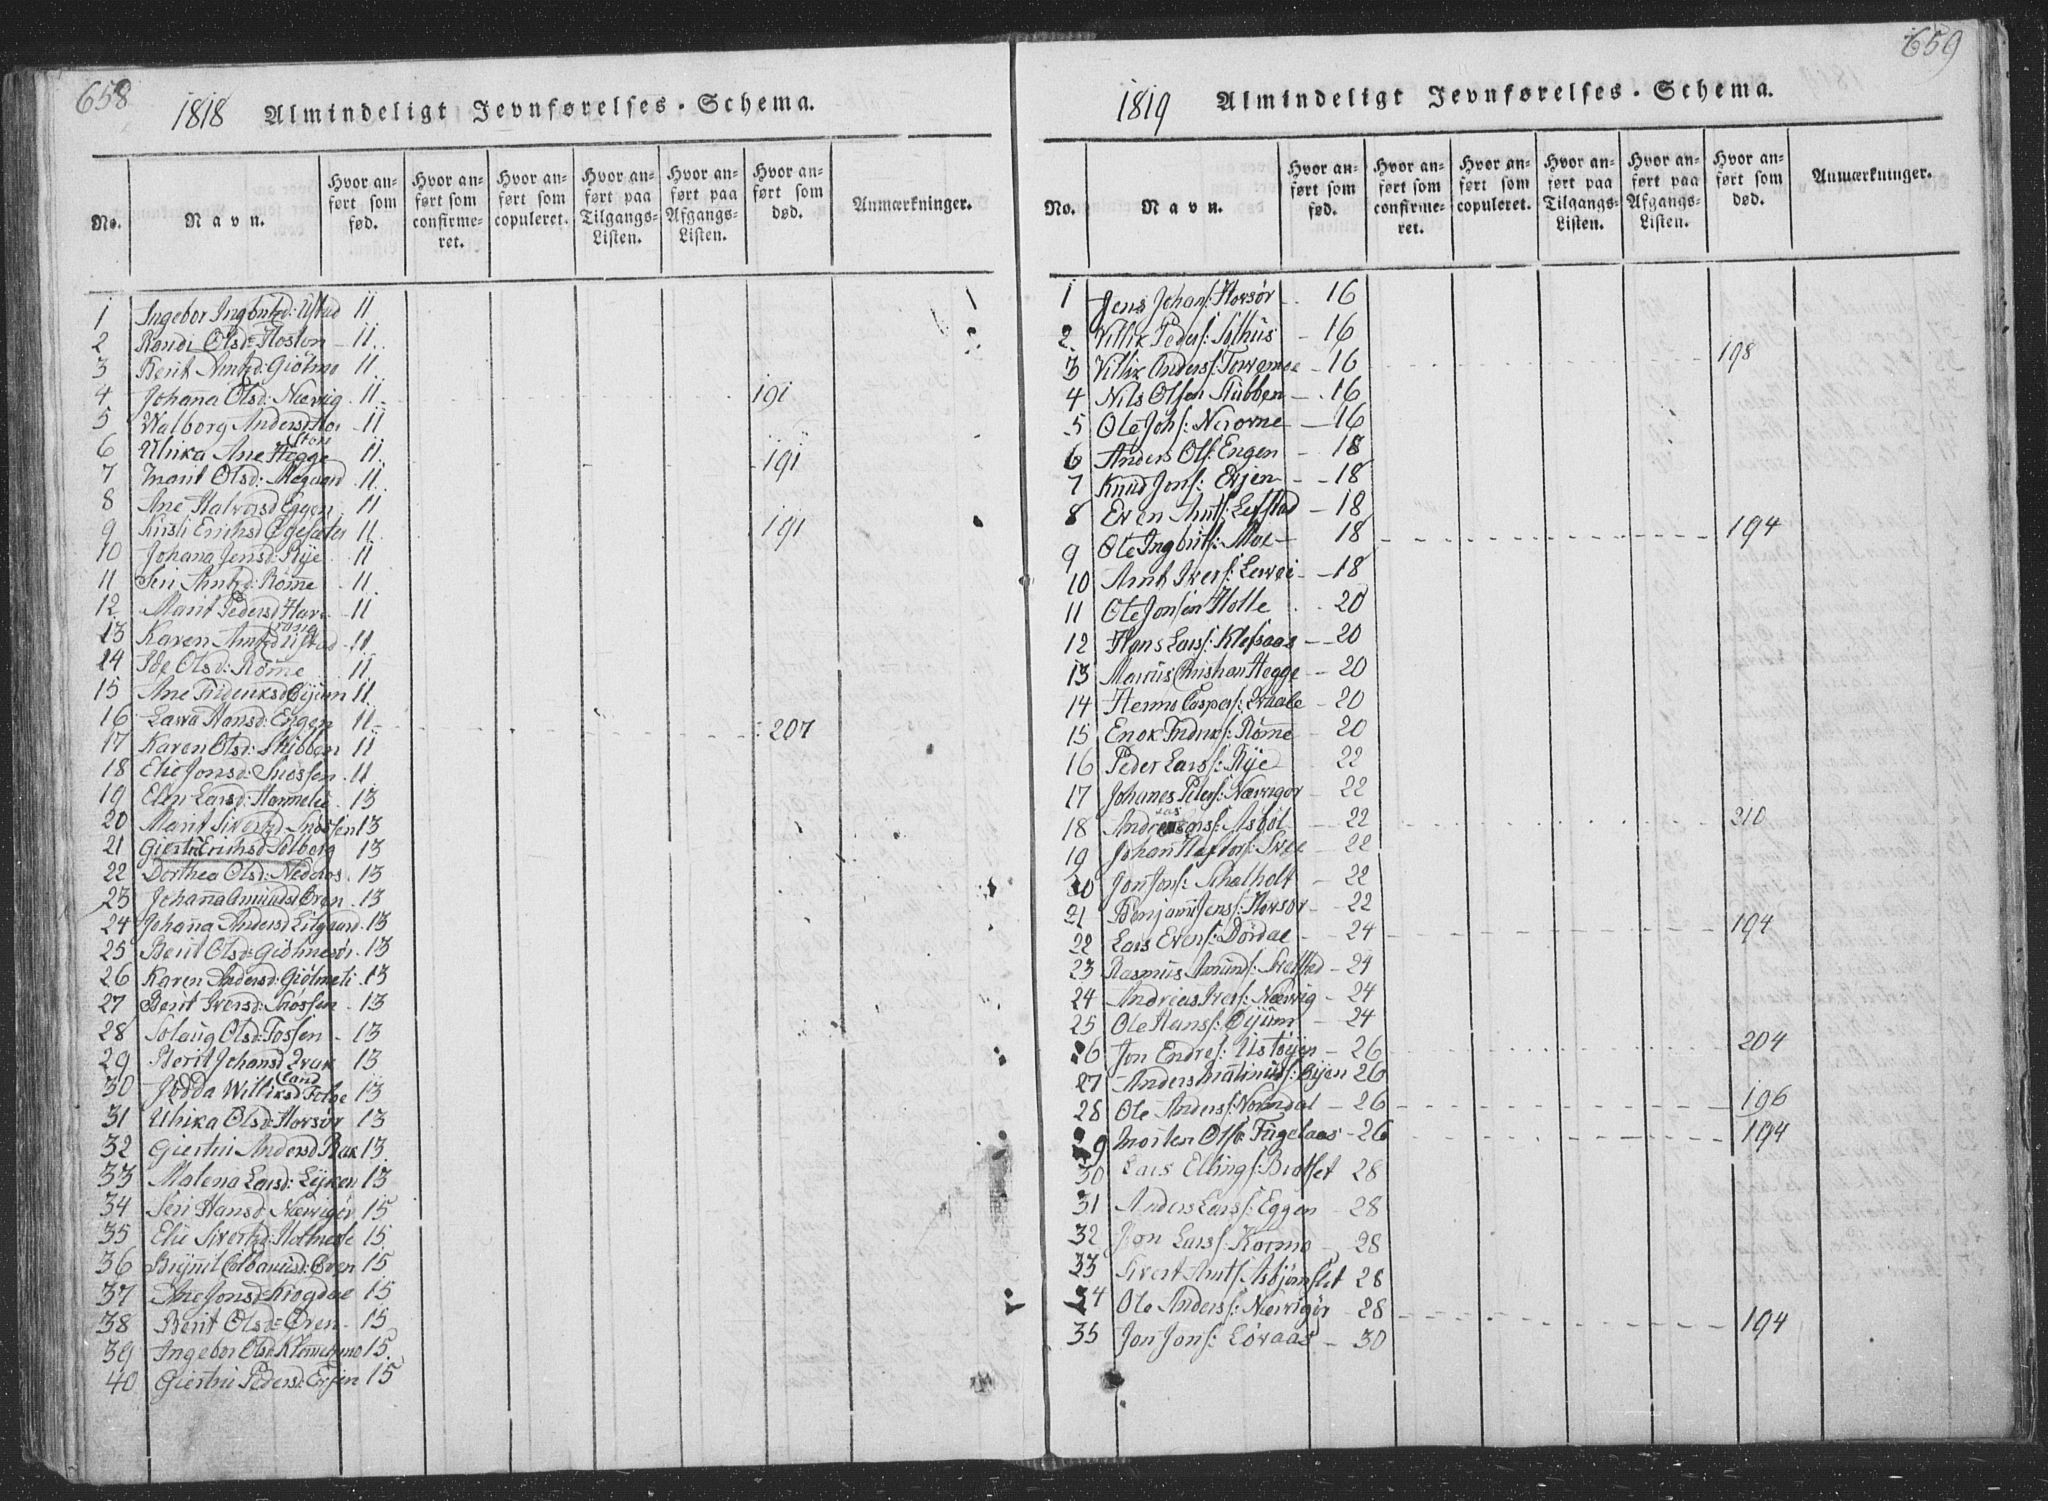 658
1818 Almindeligt Jevnførelses-Schema.
No.
Navn.
Hvor anført som fød.
Hvor anført som confirmeret.
Hvor anført som copuleret.
Hvor anført paa Tilgangs-Listen.
Hvor anført paa Afgangs-Listen.
Hvor anført som død.
Anmærkninger.
1 Ingebor Ingbritsd: Ustad 11
2 Randi Olsd: Floston 11
3 Berit Arntzd: Giølmo 11
4 Johanna Olsd: Nærvig 11 191
5 Walborg Andersd 11
6 Ulrika Ane Hegge 11 191
7 Marit Olsd: Megaard 11
8 Ane Halvorsd Eggen 11
9 Kirsti Erichsd Øgesæter 11 191
10 Johana Jensd: Rye 11
11 Seri Arntzd: Romme 11
12 Marit Pedersd 11
13 Karen Arntzd Ustad 11
14 Olsd: Rome 11
15 Ane Fridriksd Øyum 11
16 Lava Hansd: Engen 11 207
17 Karen Olsd: Stubben 11
18 Elie Jonsd: Snossen 11
19 Elen Larsd: Hammelie 13
20 Marit Sivertzd Snossen 13
21 Giertru Erichsd Solberg 13
22 Dorthea Olsd: Nederos 13
23 Johanna Amundsd Øren 13
24 Johanna Andersd Lilgaard 13
25 Berit Olsd: Giølmesør 13
26 Karen Andersd: Giølmeli 13
27 Berit Iversd: Snossen 13
28 Solaug Olsd: Fossen 13
29 Berit Johansd 13
30 Jodda Williksd 13
31 Ulrika Olsd: Horsør 13
32 Giertru Andersd Bak 13
33 Malena Larsd: Lyken 13
34 Seri Hansd: Nærvigør 15
35 Elie Sivertzd: 15
36 Brynnil Colbanusd: Øren 15
37 Ane Jonsd Krogdae 15
38 Berit Olsd: Øren 15
39 Ingebor Olsd 15
40 Giertru Pedersd: Evjen 15
659
1819 Almindeligt Jevnførelses-Schema.
No.
Navn.
Hvor anført som fød.
Hvor anført som confirmeret.
Hvor anført som copuleret.
Hvor anført paa Tilgangs-Listen.
Hvor anført paa Afgangs-Listen.
Hvor anført som død.
Anmærkninger.
1 Jens Johans: Horsør 16
2 Villik Peders: Solhus 16
3 Villik Anders: 16 198
4 Nils Olsen Stubben 16
5 Ole Johs: Neroone 16
6 Anders Ols: Engen 18
7 Knud Jons: Evjen 18
8 Even Arnts: Lefstad 18
9 Ole Ingbrits: Moe 18 194
10 Arnt Ivers: 18
11 Ole Jonsen Holte 20
12 Hans Lars: Klefsaas 20
13 Marcus Christian Hegge 20
14 Caspers: 20
15 Enok Fridriks: Romme 20
16 Peder Lars: Rye 22
17 Johanes Peters: Nærvigør 22
18 Andreas Lars: Asbøl 22 210
19 Johan Hafdors: Svee 22
20 Jon Jons: Schalholt 22
21 Benjamin Jens: Horsør 22
22 Lars Evens: Dordae 24 194
23 Rasmus Amunds: 24
24 Andreas Ivers: Nærvig 24
25 Ole Hans: Øyum 24
26 Jon Endres: Ustøyen 26 204
27 Anders Matinus: Øyen 26
28 Ole Anders: Norndal 26 196
29 Morten Ols: Fugelaas 26 194
30 Lars Ellings: Bratset 28
31 Anders Lars: Eggen 28
32 Jon Lars: Kormo 28
33 Sivert Arnts Asbjørnslet 28
34 Ole Anders: Nærvigør 28 194
35 Jon Jons: Løvaas 30